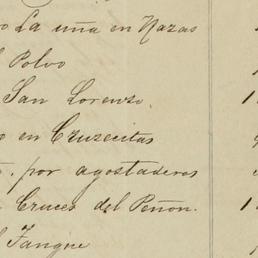 o La uña en Nazas
l Polvo
San Lorenzo.
o en Cruzecitas
. por agostaderos
Cruces del Peñon.
l Tanque